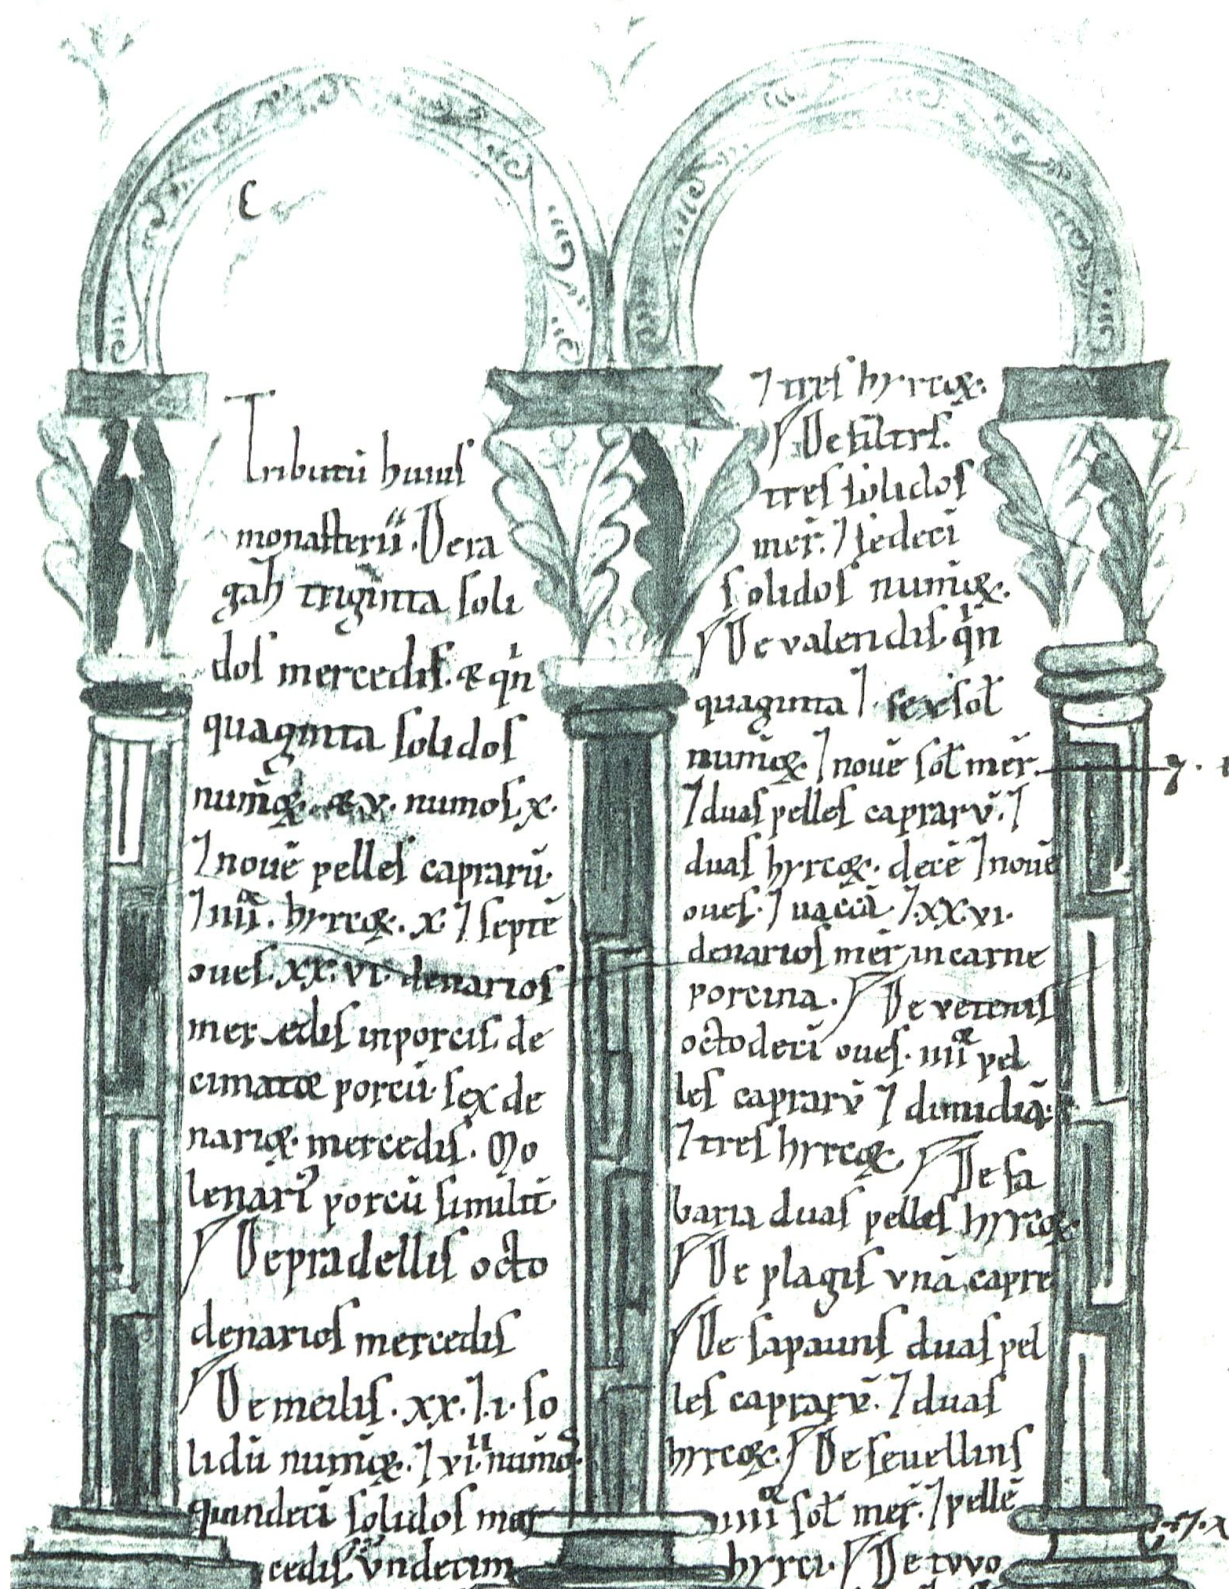 Tributū huiuſ
monaſterii. De ra
gaħ triginta ſoli
doſ mercediſ. & qn
quaginta ſolidoſ
num̄oꝝ. & v. numoſ. x.
⁊ nouē pelleſ caprarū.
⁊ iiii. hyrcoꝝ. x. ⁊ ſeptē
oueſ. xx. vi. denarioſ
mercediſ in porciſ. de
cimatoꝝ porcū. ſex de
narioꝝ mercediſ. Mo
lenari porcū ſimilit̄.
De pradelliſ octo
denarioſ mercediſ
De meiliſ. xx. ⁊. i. ſo
lidū num̄oꝝ. ⁊ vii num̄oꝝ.
quindecī ſolidoſ mer
cediſ undecim
⁊ treſ hyrcoꝝ.
De filtrſ.
treſ ſolidoſ
mer̄. ⁊ ſedecī
ſolidoſ num̄oꝝ.
De valendiſ qn
quaginta ⁊ ſex ſoł
num̄oꝝ. ⁊ nouē ſoł mer̄.
⁊ duaſ pelleſ caprarv̄. ⁊
duaſ hyrcoꝝ. decē ⁊ nouē
oueſ. ⁊ uaccā. ⁊. xx. vi.
denarioſ mer̄. in carne
porcina. De vetemſ
octodecī oueſ. iiii pel
leſ caprarv̄ ⁊ dimidiā.
⁊ treſ hyrcoꝝ De fa
baria duaſ pelleſ hyrcoꝝ
De plagiſ vnā capre
De ſapaunſ duaſ pel
leſ caprarv̄. ⁊ duaſ
hyrcoꝝ. De ſeuellinſ
iiii ſoł mer̄. ⁊ pellē
hyrci. De tvvo